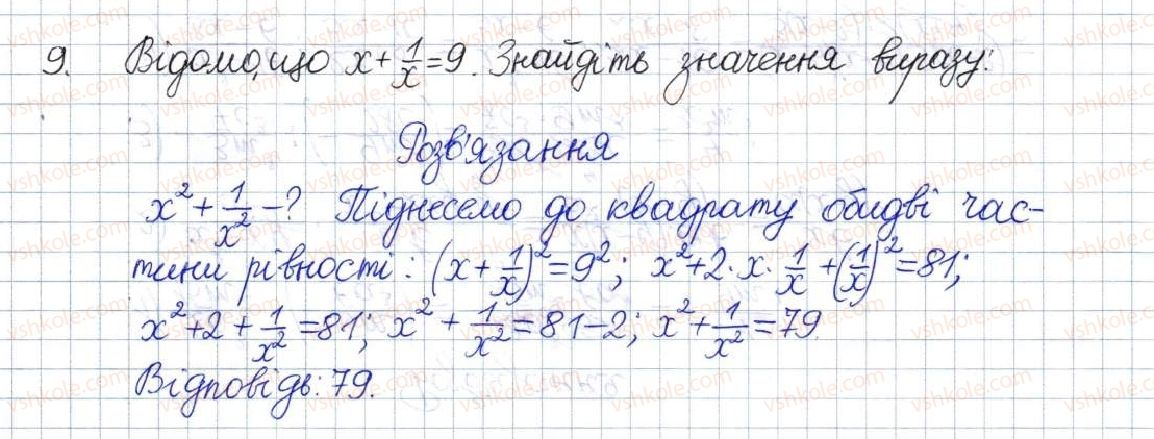 9. Відомо, що x + 1/x = 9. Знайдіть значення виразу:
Розв'язання
x² + 1/x² - ? Піднесемо до квадрату обидві час-
тини рівності: (x + 1/x)² = 9²; x² + 2 · x · 1/x + (1/x)² = 81;
x² + 2 + 1/x² = 81; x² + 1/x² = 81 - 2; x² + 1/x² = 79.
Відповідь: 79.